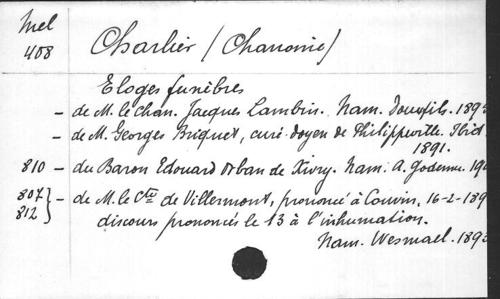 Mel
408
Charlier / (Chanoine)
Eloges funèbres
- de M. le Chan. Jacques Lambin. Nam. Douxfils. 189
- de M. Georges Briquet, curé-doyen de Philippeville. Ibid.
1891.
810 - du Baron Edouard Orban de Xivry. Nam. A. Godenne. 19
807 } - de M. le Cte de Villermont, prononcé à Couvin, 16-2-189
812
discours prononcés le 13 à l'inhumation.
Nam. Wesmael. 189